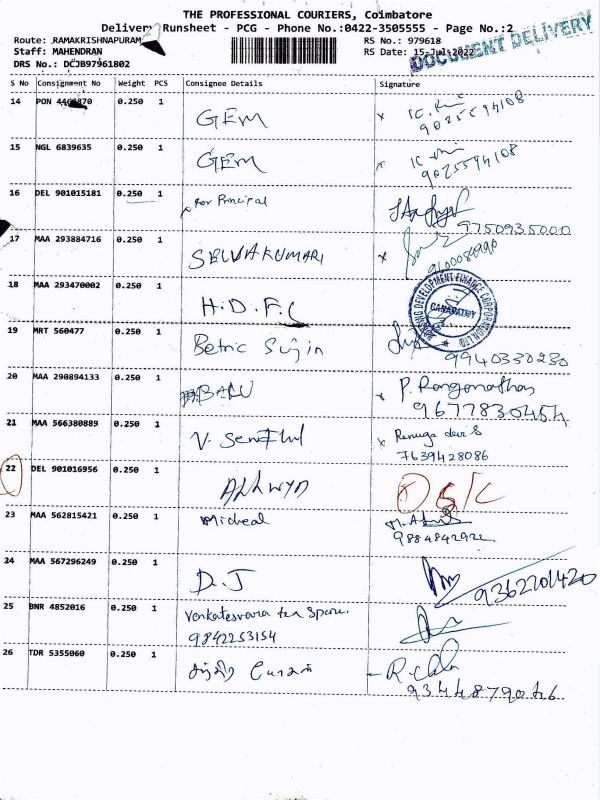 THE PROFESSIONAL COURIERS, Coimbatore
Delivery Runsheet - PCG - Phone No.:0422-3505555 - Page No.:2
Route: RAMAKRISHNAPURAM
RS No.: 979618
Staff: MAHENDRAN
RS Date: 15-Jul-2022
DOCUMENT DELIVERY
DRS No.: DCJB97961802
S No Consignment No Weight PCS Consignee Details Signature
14 PON 0.250 1 GEM x
9025594108
15 NGL 6839635 0.250 1 GEM x
9025594108
16 DEL 901015181 0.250 1 For Principal
9750935000
17 MAA 293884716 0.250 1 SELVAKUMARI x
18 MAA 293470002 0.250 1 H.D.F.C
HOUSING DEVELOPMENT FINANCE CORPORATION LTD
GANAPATHY
19 MRT 560477 0.250 1 Betric Sujin
9940330280
20 MAA 290894133 0.250 1 BALU x P. Ranganathan
9677830454
21 MAA 566380889 0.250 1 V. Senthil x Renuga devi S
7639428086
22 DEL 901016956 0.250 1
23 MAA 562815421 0.250 1 Micheal
24 MAA 567296249 0.250 1 D.J
9362201420
25 BNR 4852016 0.250 1 Venkatesvara tea
9842253154
26 TDR 5355060 0.250 1